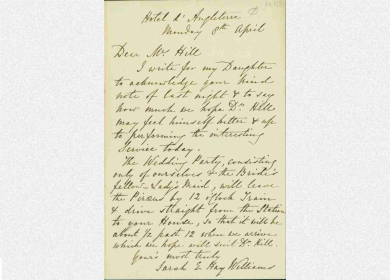 Hotel d' Angleterre
Monday 8th April
Dear Mr Hill
I write for my Daughter
to acknowledge your kind
note of last night & to say
how much we hope Dr. Hill
may feel himself better & up
to performing the interesting
Service today.
The Wedding Party, consisting
only of ourselves & the Bride's
fellow Lady's Maid, will leave
the Piræus by 12 o'clock Train
& drive straight from the Station
to your House, so that it will be
about ½ past 12 when we arrive
which we hope will suit Dr. Hill.
Your's most truly
Sarah E Hay Williams